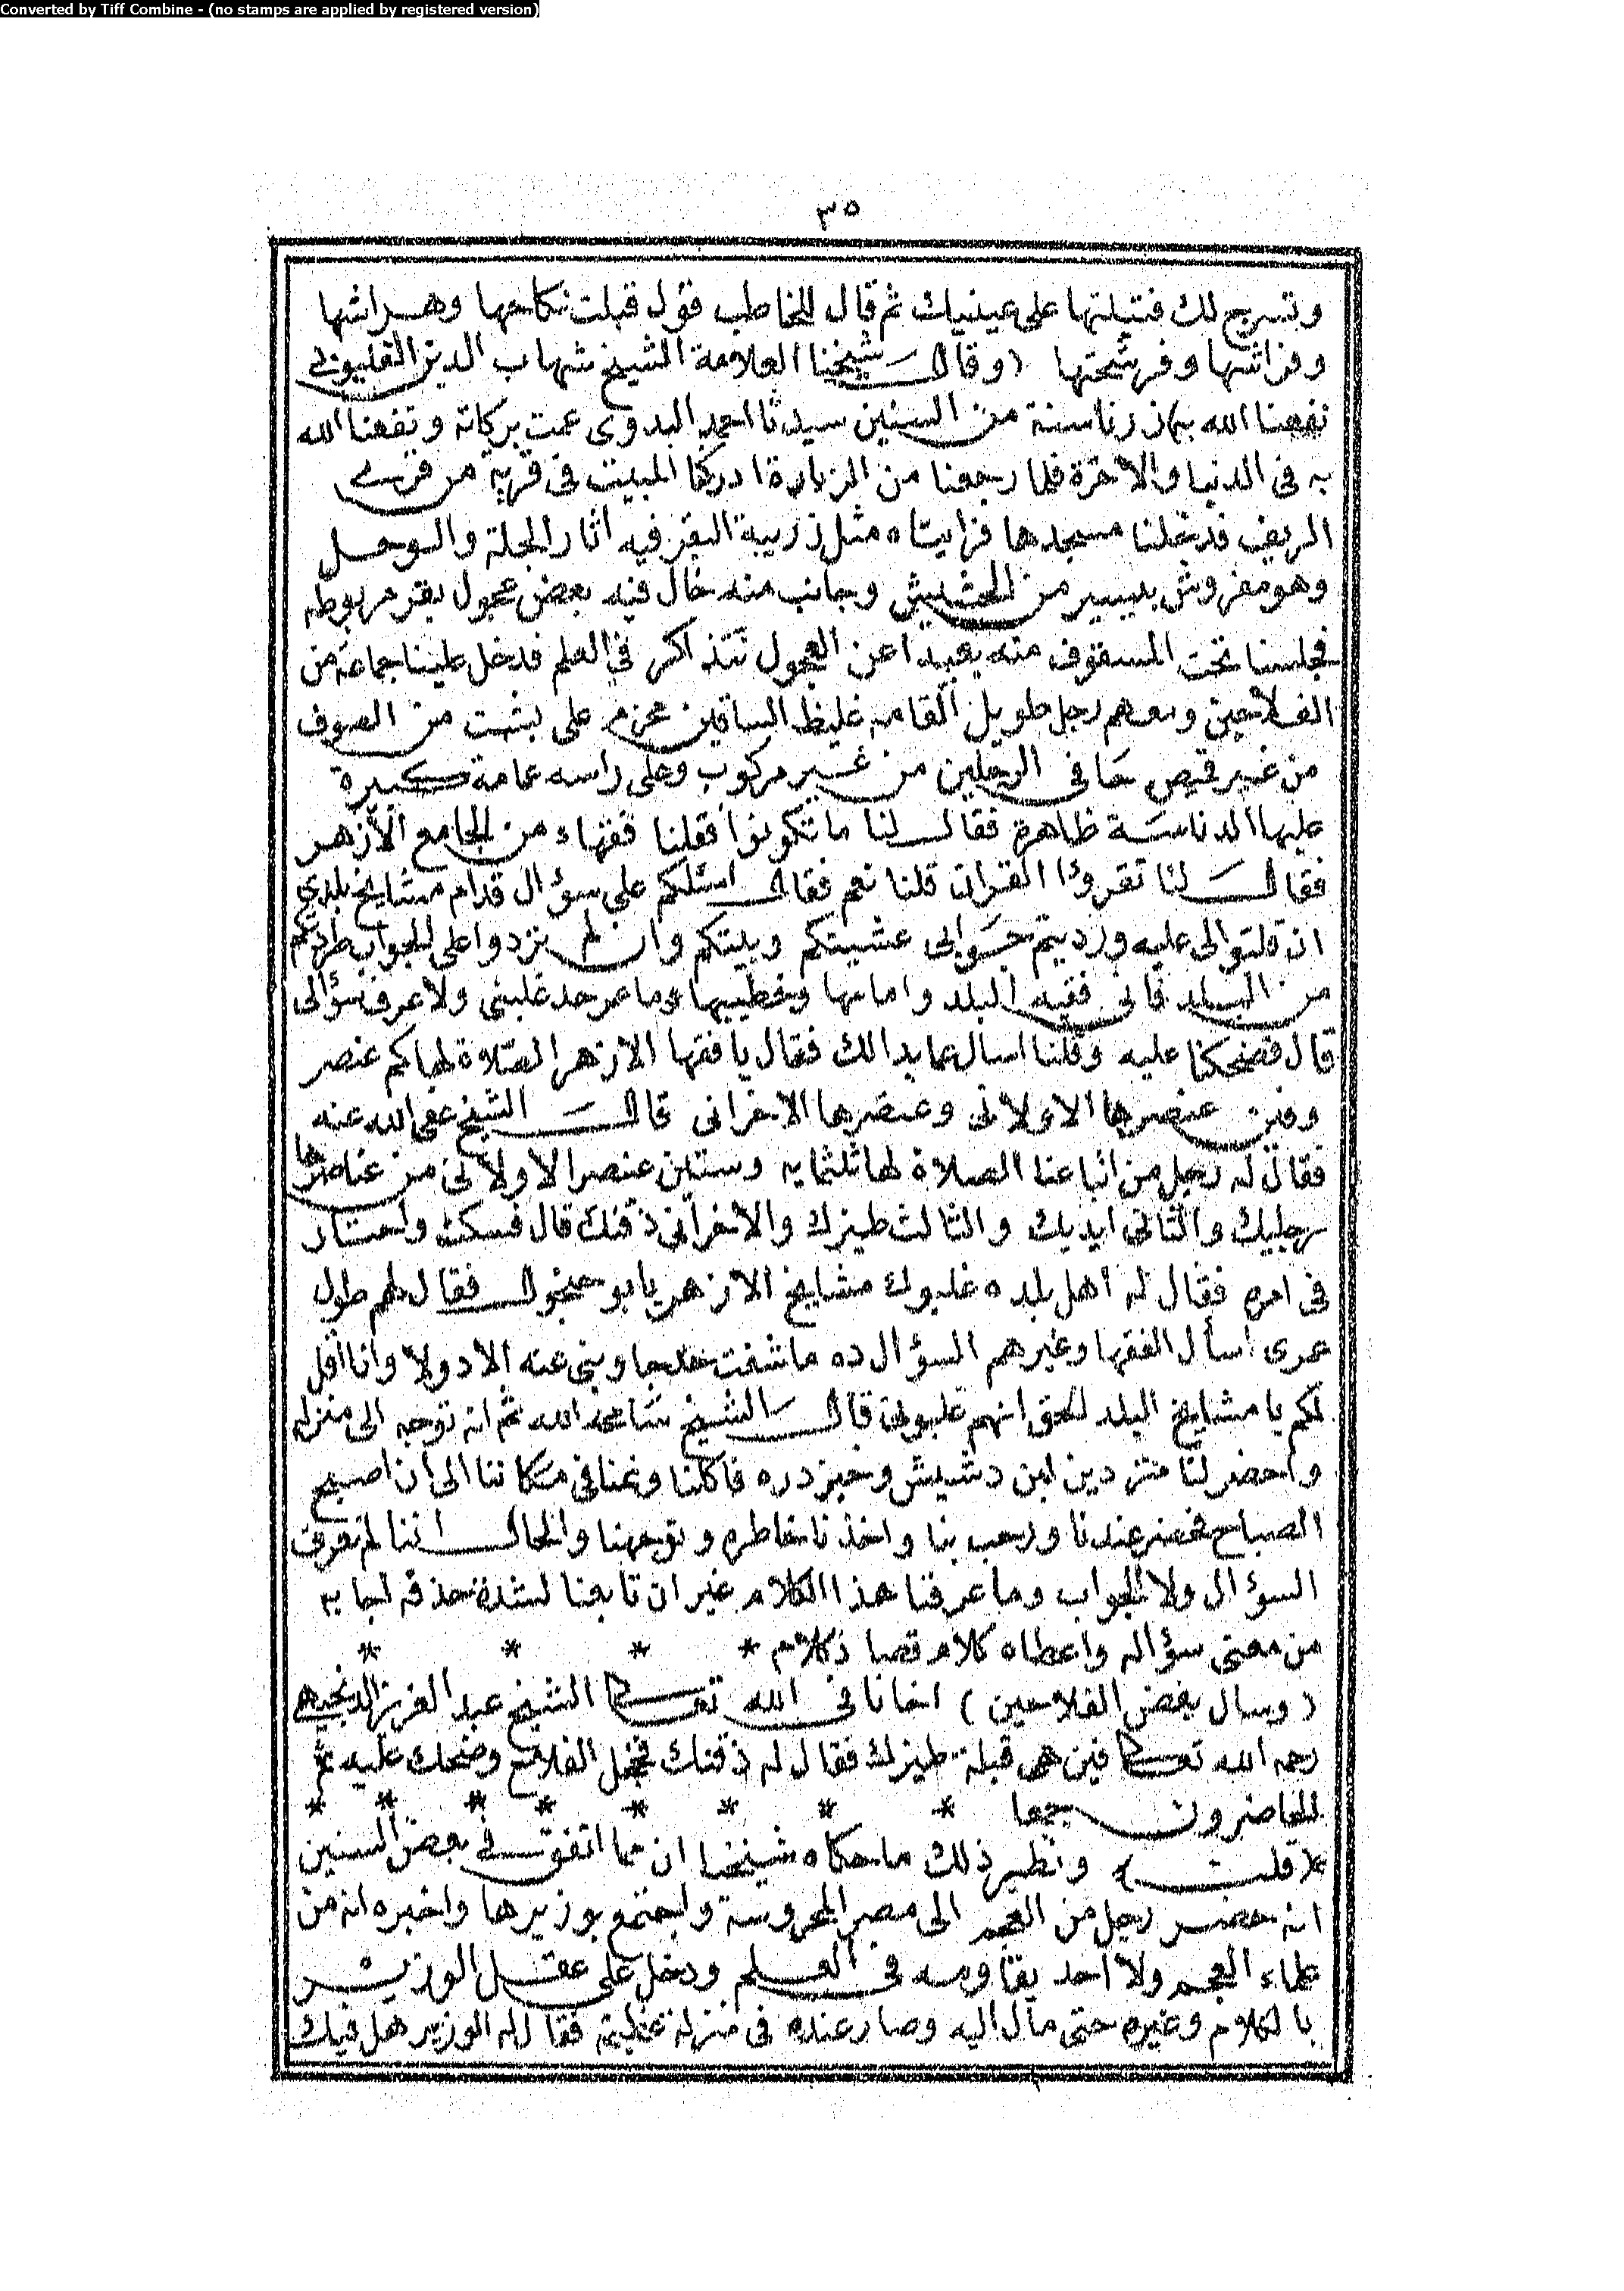 Converted by Tiff Combine - (no stamps are applied by registered version)
٣٥
وتسرح لك فتقبلتها على عينيك ثم قال للخاطب قول قبلت نكاحها وهراشها
وفراشها وفرشحتها (وقال شيخنا العلامة الشيخ شهاب الدين القليوبى
نفعنا الله به زرنا سنة من السنين سيدنا احمد البدوى عمت بركاته ونفعنا الله
به فى الدنيا والاخرة فلما رجعنا من الزيارة ادركنا المبيت فى قرية من قرى
الريف فدخلنا مسجدها فرايناه مثل زريبة البقر فيه اثار الجلة والوحل
وهو مفروش بيسير من الحشيش وجانب منه خال فيه بعض عجول بقر مربوطه
فجلسنا تحت المسقوف منه بعيدا عن العجول نتذاكر فى العلم فدخل علينا جماعة من
الفلاحين ومعهم رجل طويل القامه غليظ الساقين محزم على بشت من الصوف
من غير قميص حافى الرجلين من غير مركوب وعلى راسه عمامة كبيرة
عليها الدناسة ظاهرة فقال لنا ما تكونوا فقلنا فقهاء من الجامع الأزهر
فقال لنا تقروا القران قلنا نعم فقال اسئلكم على سؤال قدام مشايخ بلدى
ان قلتوا لى عليه ورديتم جوابى عشيتكم وبيتكم وان لم تردوا على الجواب طردتكم
من البلد فانى فقيه البلد وامامها وخطيبها وما عمر حد غلبنى ولا عرف سؤالى
قال فضحكنا عليه وقلنا اسال عما بدالك فقال يا فقها الازهر الصلاة لها كم عنصر
وفين عنصرها الاولانى وعنصرها الاخرانى قال الشيخ عفى الله عنه
فقال له رجل من اتباعنا الصلاة لها ثلثمايه وستين عنصر الاولانى من عناصرها
رجليك والثانى ايديك والثالث طيزك والاخرانى ذقنك قال فسكت واحتار
فى امره فقال له أهل بلده غلبوك مشايخ الازهر يا ابو عجول فقال لهم طول
عمرى اسأل الفقها وغيرهم السؤال ده ما شفت حد جاوبنى عنه الا دولا وانا اقل
لكم يا مشايخ البلد الحق انهم غلبونى قال الشيخ سامحه الله ثم انه توجه الى منزله
واحضر لنا متردين لبن دشيش وخبز دره فاكلنا ونمنا فى مكاننا الى أن اصبح
الصباح فحضر عندنا ورحب بنا واخذنا خاطره وتوجهنا والحال اننا لم نعرف
السؤال ولا الجواب وما عرفنا هذا الكلام غير ان تابعنا لشدة حذقه اجابه
من معنى سؤاله واعطاه كلام قصاد كلام * * * *
(وسال بعض الفلاحين) اخانا فى الله تعالى الشيخ عبد العزيز الدنجيهى
رحمه الله تعالى فين هى قبلة طيزك فقال له ذقنك فخجل الفلاح وضحك عليه ثم
الحاضرون جمعا * * * * * * * *
(قلت) ونظير ذلك ما حكاه شيخنا ان مما اتفق فى بعض السنين
انه حضر رجل من العجم الى مصر المحروسة واجتمع بوزيرها واخبره انه من
علماء العجم ولا احد يقاومه فى العلم ودخل على عقل الوزير
بالكلام وغيره حتى مال اليه وصار عنده فى منزلة عظيمة فقال له الوزير هل فيك